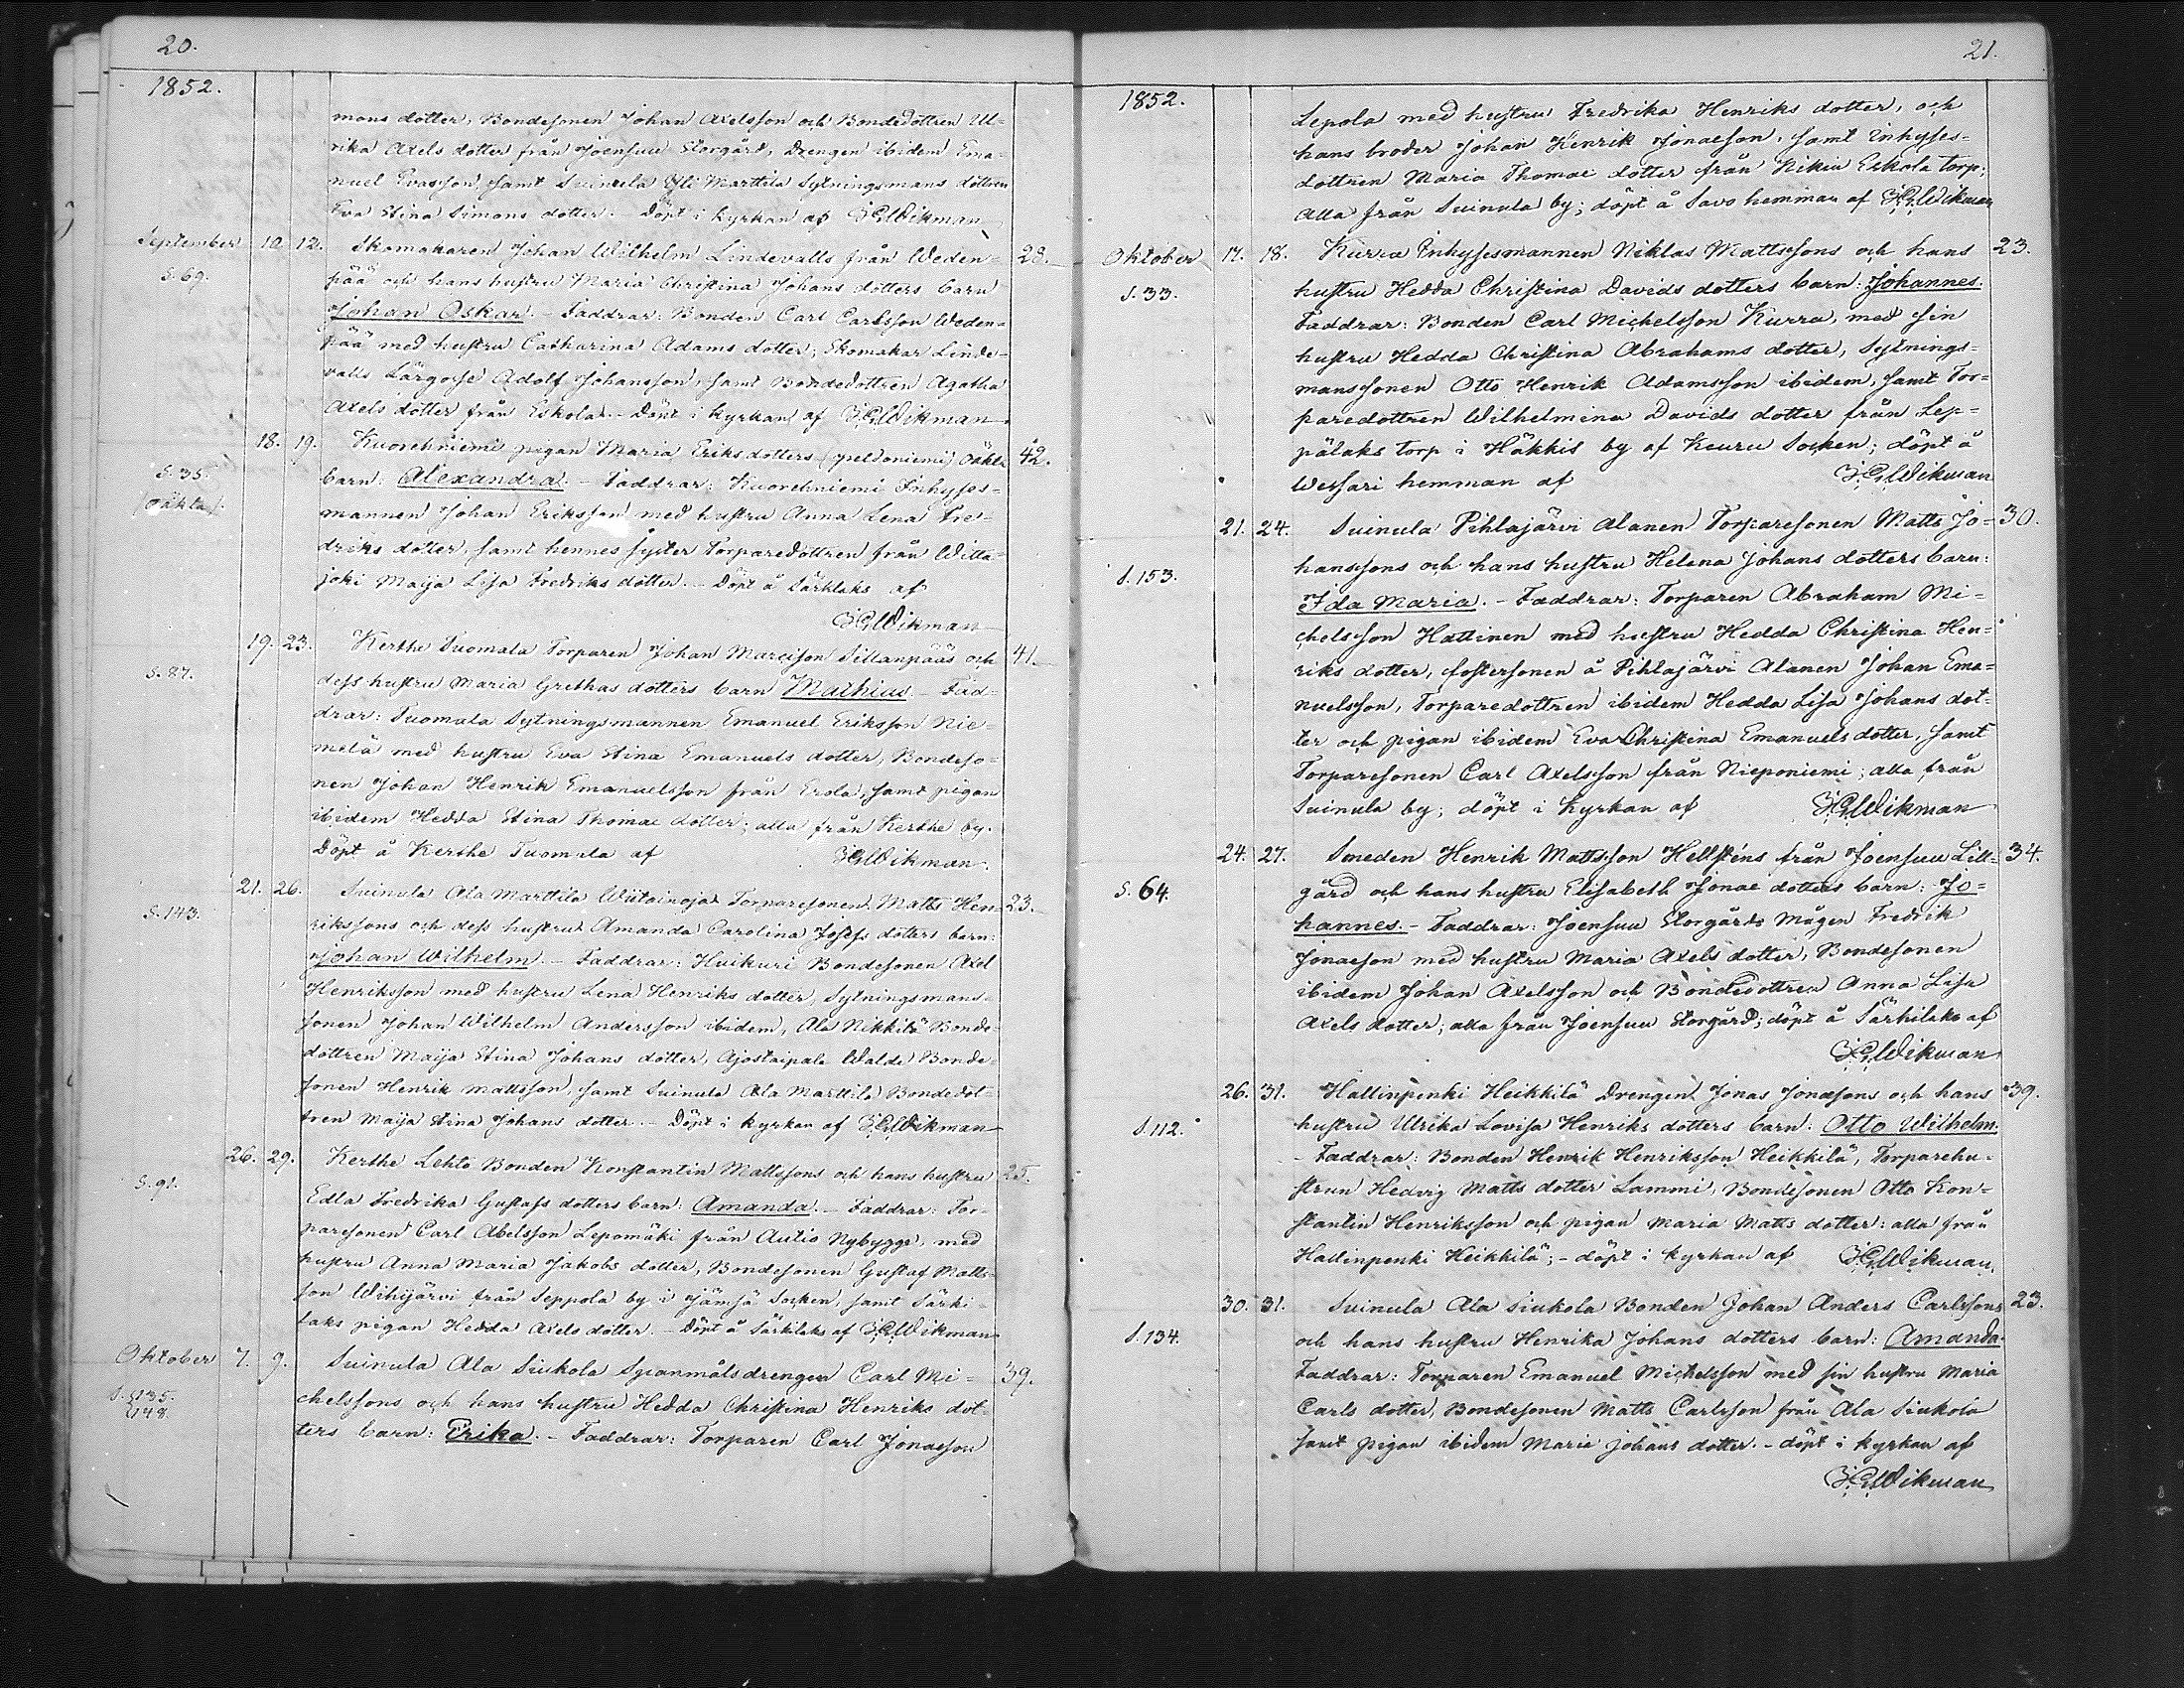 20.
1852.
mans dotter, Bondesonen Johan Axelsson och Bondedottren Ul-
rika Axels dotter från Joensuu Storgård, Drengen ibidem Ema-
nuel Evasson, samt Suinula Yli Marttila Sytningsmans dottren
Eva Stina Simons dotter. - Döpt i kyrkan af Wikman
September 10. 12. Skomakaren Johan Wilhelm Lindevalls från Weden- 28.
S. 69. pää och hans hustru Maria Christina Johans dotters barn
Johan Oskar. - Faddrar: Bonden Carl Carlsson Weden-
pää med hustru Catharina Adams dotter, Skomakar Linde-
valls Lärgosse Adolf Johansson, samt Bondedottren Agatha
Axels dotter från Eskola. - Döpt i kyrkan af Wikman
18. 19. Kuorehniemi pigan Maria Eriks dotters (peldoniemi) oäkta 42.
S. 35. barn: Alexandra. - Faddrar: Kuorehniemi Inhyses-
(oäkta). mannen Johan Eriksson med hustru Anna Lena Fre-
driks dotter, samt hennes syster Torparedottren från Witta-
joki Maija Lisa Fredriks dotter. - Döpt å Särkilaks af
Wikman
19. 23. Kerthe Tuomala Torparen Johan Marcison Sillanpääs och 41.
S. 87. dess hustru Maria Grethas dotters barn Mathias. - Fad-
drar: Tuomala Sytningsmannen Emanuel Eriksson Nie-
melä med hustru Eva Stina Emanuels dotter, Bondeso-
nen Johan Henrik Emanuelsson från Erola, samt pigan
ibidem Hedda Stina Thomae dotter; alla från Kerthe by.
Döpt å Kerthe Tuomala af Wikman.
21. 26. Suinula Ala Marttila Wiitainoja Torparesonen Matts Hen- 23.
S. 143. rikssons och dess hustru Amanda Carolina Josefs dotters barn:
Johan Wilhelm. - Faddrar: Huikuri Bondesonen Axel
Henriksson med hustru Lena Henriks dotter, Sytningsmans-
sonen Johan Wilhelm Andersson ibidem, Ala Nikkilä Bonde-
dottren Maija Stina Johans dotter, Ajostaipale Walde Bonde-
sonen Henrik Mattsson, samt Suinula Ala Marttila Bondedot-
tren Maija Stina Johans dotter. - Döpt i kyrkan af Wikman
26. 29. Kerthe Lehto Bonden Konstantin Mattssons och hans hustru 25.
S. 91. Edla Fredrika Gustafs dotters barn: Amanda. - Faddrar: Tor-
paresonen Carl Abelsson Lepomäki från Autio Nybygge, med
hustru Anna Maria Jakobs dotter, Bondesonen Gustaf Matts-
son Wihijärvi från Seppola by i Jämsä Socken, samt Särki-
laks pigan Hedda Axels dotter. - Döpt å Särkilaks af Wikman
Oktober 7. 9. Suinula Ala Siukola Spanmålsdrengen Carl Mi- 39.
S. 135. 148. chelssons och hans hustru Hedda Christina Henriks dot-
ters barn: Erika. - Faddrar: Torparen Carl Jonaeson
21.
1852.
Lepola med hustru Fredrika Henriks dotter, och
hans broder Johan Henrik Jonaeson, samt Inhyses-
dottren Maria Thomae dotter från Nikiu Eskola torp;
alla från Suinula by; döpt å Savo hemman af Wikman
Oktober 17. 18. Kurra Inhysesmannen Niklas Mattssons och hans 23.
S. 33. hustru Hedda Christina Davids dotters barn: Johannes.
Faddrar: Bonden Carl Michelsson Kurra, med sin
hustru Hedda Christina Abrahams dotter, Sytnings-
manssonen Otto Henrik Adamsson ibidem, samt Tor-
paredottren Wilhelmina Davids dotter från Lep-
pälaks torp i Häkkis by af Keuru Socken; döpt å
Wessari hemman af Wikman
21. 24. Suinula Pihlajärvi Alanen Torparesonen Matts Jo- 30.
S. 153. hanssons och hans hustru Helena Johans dotters barn:
Ida Maria. - Faddrar: Torparen Abraham Mi-
chelsson Hattinen med hustru Hedda Christina Hen-
riks dotter, fostersonen å Pihlajärvi Alanen Johan Ema-
nuelsson, Torparedottren ibidem Hedda Lisa Johans dot-
ter och pigan ibidem Eva Christina Emanuels dotter, samt
Torparesonen Carl Axelsson från Nieponiemi; alla från
Suinula by; döpt i Kyrkan af Wikman
24. 27. Smeden Henrik Mattsson Hellsténs från Joensuu Lill- 34.
S. 64. gård och hans hustru Elisabeth Jonae dotters barn: Jo-
hannes. - Faddrar: Joensuu Storgårds Mågen Fredrik
Jonaeson med hustru Maria Axels dotter, Bondesonen
ibidem Johan Axelsson och Bondedottren Anna Lisa
Axels dotter; alla från Joensuu Storgård; döpt å Särkilaks af
Wikman
26. 31. Hallinpenki Heikkilä Drengen Jonas Jonaesons och hans 39.
S. 112. hustru Ulrika Lovisa Henriks dotters barn: Otto Wilhelm.
- Faddrar: Bonden Henrik Henriksson Heikkilä, Torparehu-
strun Hedvig Matts dotter Lammi, Bondesonen Otto Kon-
stantin Henriksson och pigan Maria Matts dotter: alla från
Hallinpenki Heikkilä; - döpt i kyrkan af Wikman.
30. 31. Suinula Ala Siukola Bonden Johan Anders Carlssons 23.
S. 134. och hans hustru Henrika Johans dotters barn: Amanda.
Faddrar: Torparen Emanuel Michelsson med sin hustru Maria
Carls dotter, Bondesonen Matts Carlsson från Ala Siukola
samt pigan ibidem Maria Johans dotter. - döpt i kyrkan af
Wikman